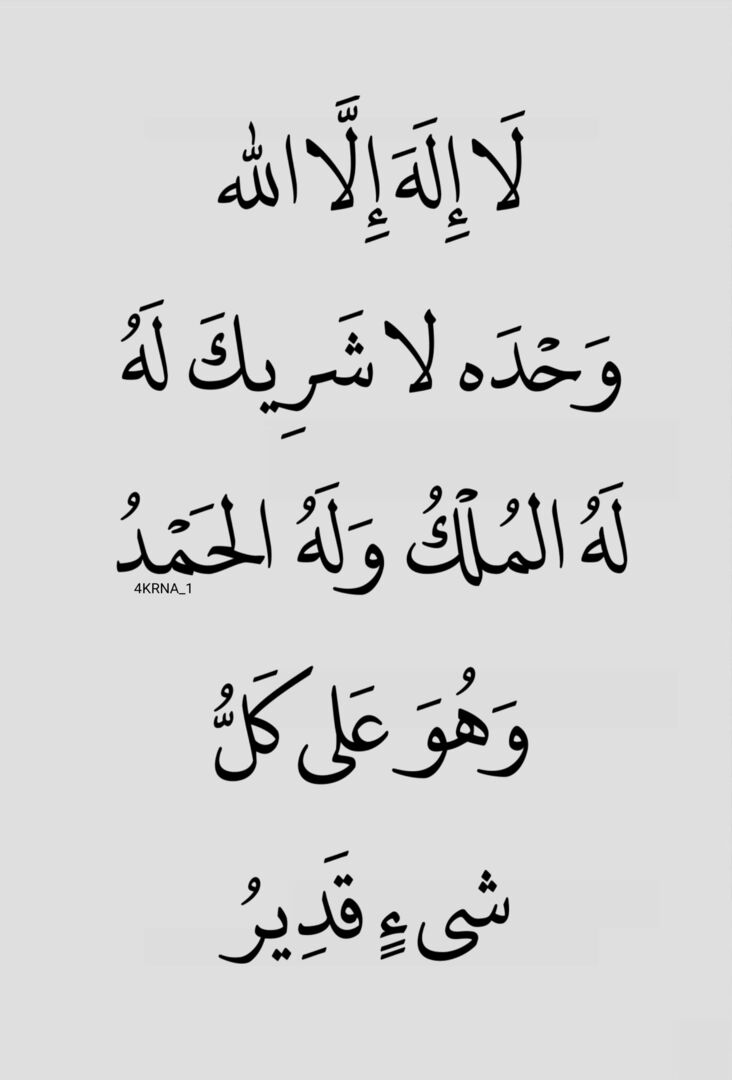 لَا إِلَهَ إِلَّا الله
وَحْدَه لا شَرِيكَ لَهُ
لَهُ المُلْكُ وَلَهُ الحَمْدُ
4KRNA_1
وَهُوَ عَلى كَلُّ
شىءٍ قَدِيرُ